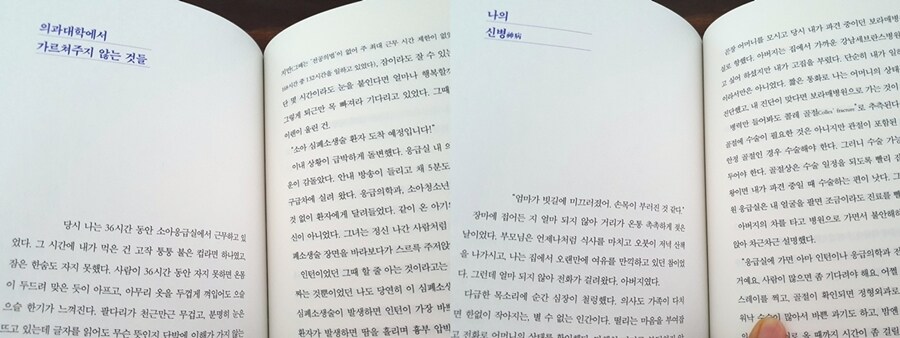 의과대학에서
가르쳐주지 않는 것들
당시 나는 36시간 동안 소아응급실에서 근무하고 있
었다. 그 시간에 내가 먹은 건 고작 퉁퉁 불은 컵라면 하나였고
잠은 한숨도 자지 못했다. 사람이 36시간 동안 자지 못하면 온몸
이 두드려 맞은 듯이 아프고, 아무리 옷을 두껍게 껴입어도 으슬
으슬 한기가 느껴진다. 팔다리가 천근만근 무겁고, 분명히 눈은
뜨고 있는데 글자를 읽어도 무슨 뜻인지 단박에 이해가 가지 않는
'전공의법'이 없어 주 최대 근무 시간 제한이 없
시간 중 132시간을 일하고 있었다), 잠이라도 잘 수 있는
단 몇 시간이라도 눈을 붙인다면 얼마나 행복할
그렇게 퇴근만 목 빠져라 기다리고 있었다. 그때
이 울린 건.
"소아 심폐소생술 환자 도착 예정입니다!"
이내 상황이 급박하게 돌변했다. 응급실 내 의
운이 감돌았다. 안내 방송이 들리고 채 5분도
구급차에 실려 왔다. 응급의학과, 소아청소년
것 없이 환자에게 달려들었다. 같이 온 아기
신이 아니었다. 그녀는 정신 나간 사람처럼
폐소생술 장면을 바라보다가 스르륵 주저앉
인턴이었던 그때 할 줄 아는 것이라고는
짜는 것뿐이었던 나도 당연히 이 심폐소생
심폐소생술이 발생하면 인턴이 가장 바쁘
환자가 발생하면 땀을 흘리며 흉부 압박
나의
신병神病
"엄마가 빗길에 미끄러졌어. 손목이 부러진 것 같다."
장마에 접어든 지 얼마 되지 않아 거리가 온통 축축하게 젖은
날이었다. 부모님은 언제나처럼 식사를 마치고 오붓이 저녁 산책
을 나가시고, 나는 집에서 오랜만에 여유를 만끽하고 있던 참이었
다. 그런데 얼마 되지 않아 전화가 걸려왔다. 아버지였다.
다급한 목소리에 순간 심장이 철렁했다. 의사도 가족이 다치
면 한없이 작아지는, 별 수 없는 인간이다. 떨리는 마음을 부여잡
고 전화로 어머니의 상태를 확인했다.
어머니를 모시고 당시 내가 파견 중이던 보라매병원
로 향했다. 아버지는 집에서 가까운 강남세브란스병원
고 싶어 하셨지만 내가 고집을 부렸다. 단순히 내가 일하
이라서만은 아니었다. 짧은 통화로 나는 어머니의 상태
진단했고, 내 진단이 맞다면 보라매병원으로 가는 것이
병력만 들어봐도 콜레 골절Colles' fracture로 추측된다
골절에 수술이 필요한 것은 아니지만 관절이 포함된
안정 골절인 경우 수술해야 한다. 그러니 수술 가능
두어야 한다. 골절상은 수술 일정을 되도록 빨리 잡
황이면 내가 파견 중일 때 수술하는 편이 낫다. 그
원 응급실은 내 얼굴을 팔면 조금이라도 진료를 빨
아버지의 차를 타고 병원으로 가면서 불안해하
앉아 차근차근 설명했다.
"응급실에 가면 아마 인턴이나 응급의학과 전
거예요. 사람이 많으면 좀 기다려야 해요. 어쩔
스레이를 찍고, 골절이 확인되면 정형외과로
워낙 수술이 많아서 바쁜 과기도 하고, 밤엔
올 때까지 시간이 좀 걸릴